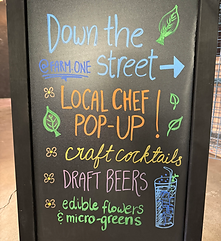 Down the
@FARM.ONE street →
LOCAL CHEF
POP-UP!
craft cocktails
DRAFT BEERS
edible flowers
& micro-greens